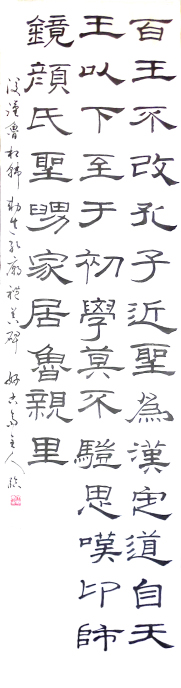 百王不改孔子近聖為漢定道自天
王以下至于初學莫不騶思嘆卬師
鏡顏氏聖舅家居魯親里
後漢魯相韓勑造孔廟禮器碑 好古齋主人臨